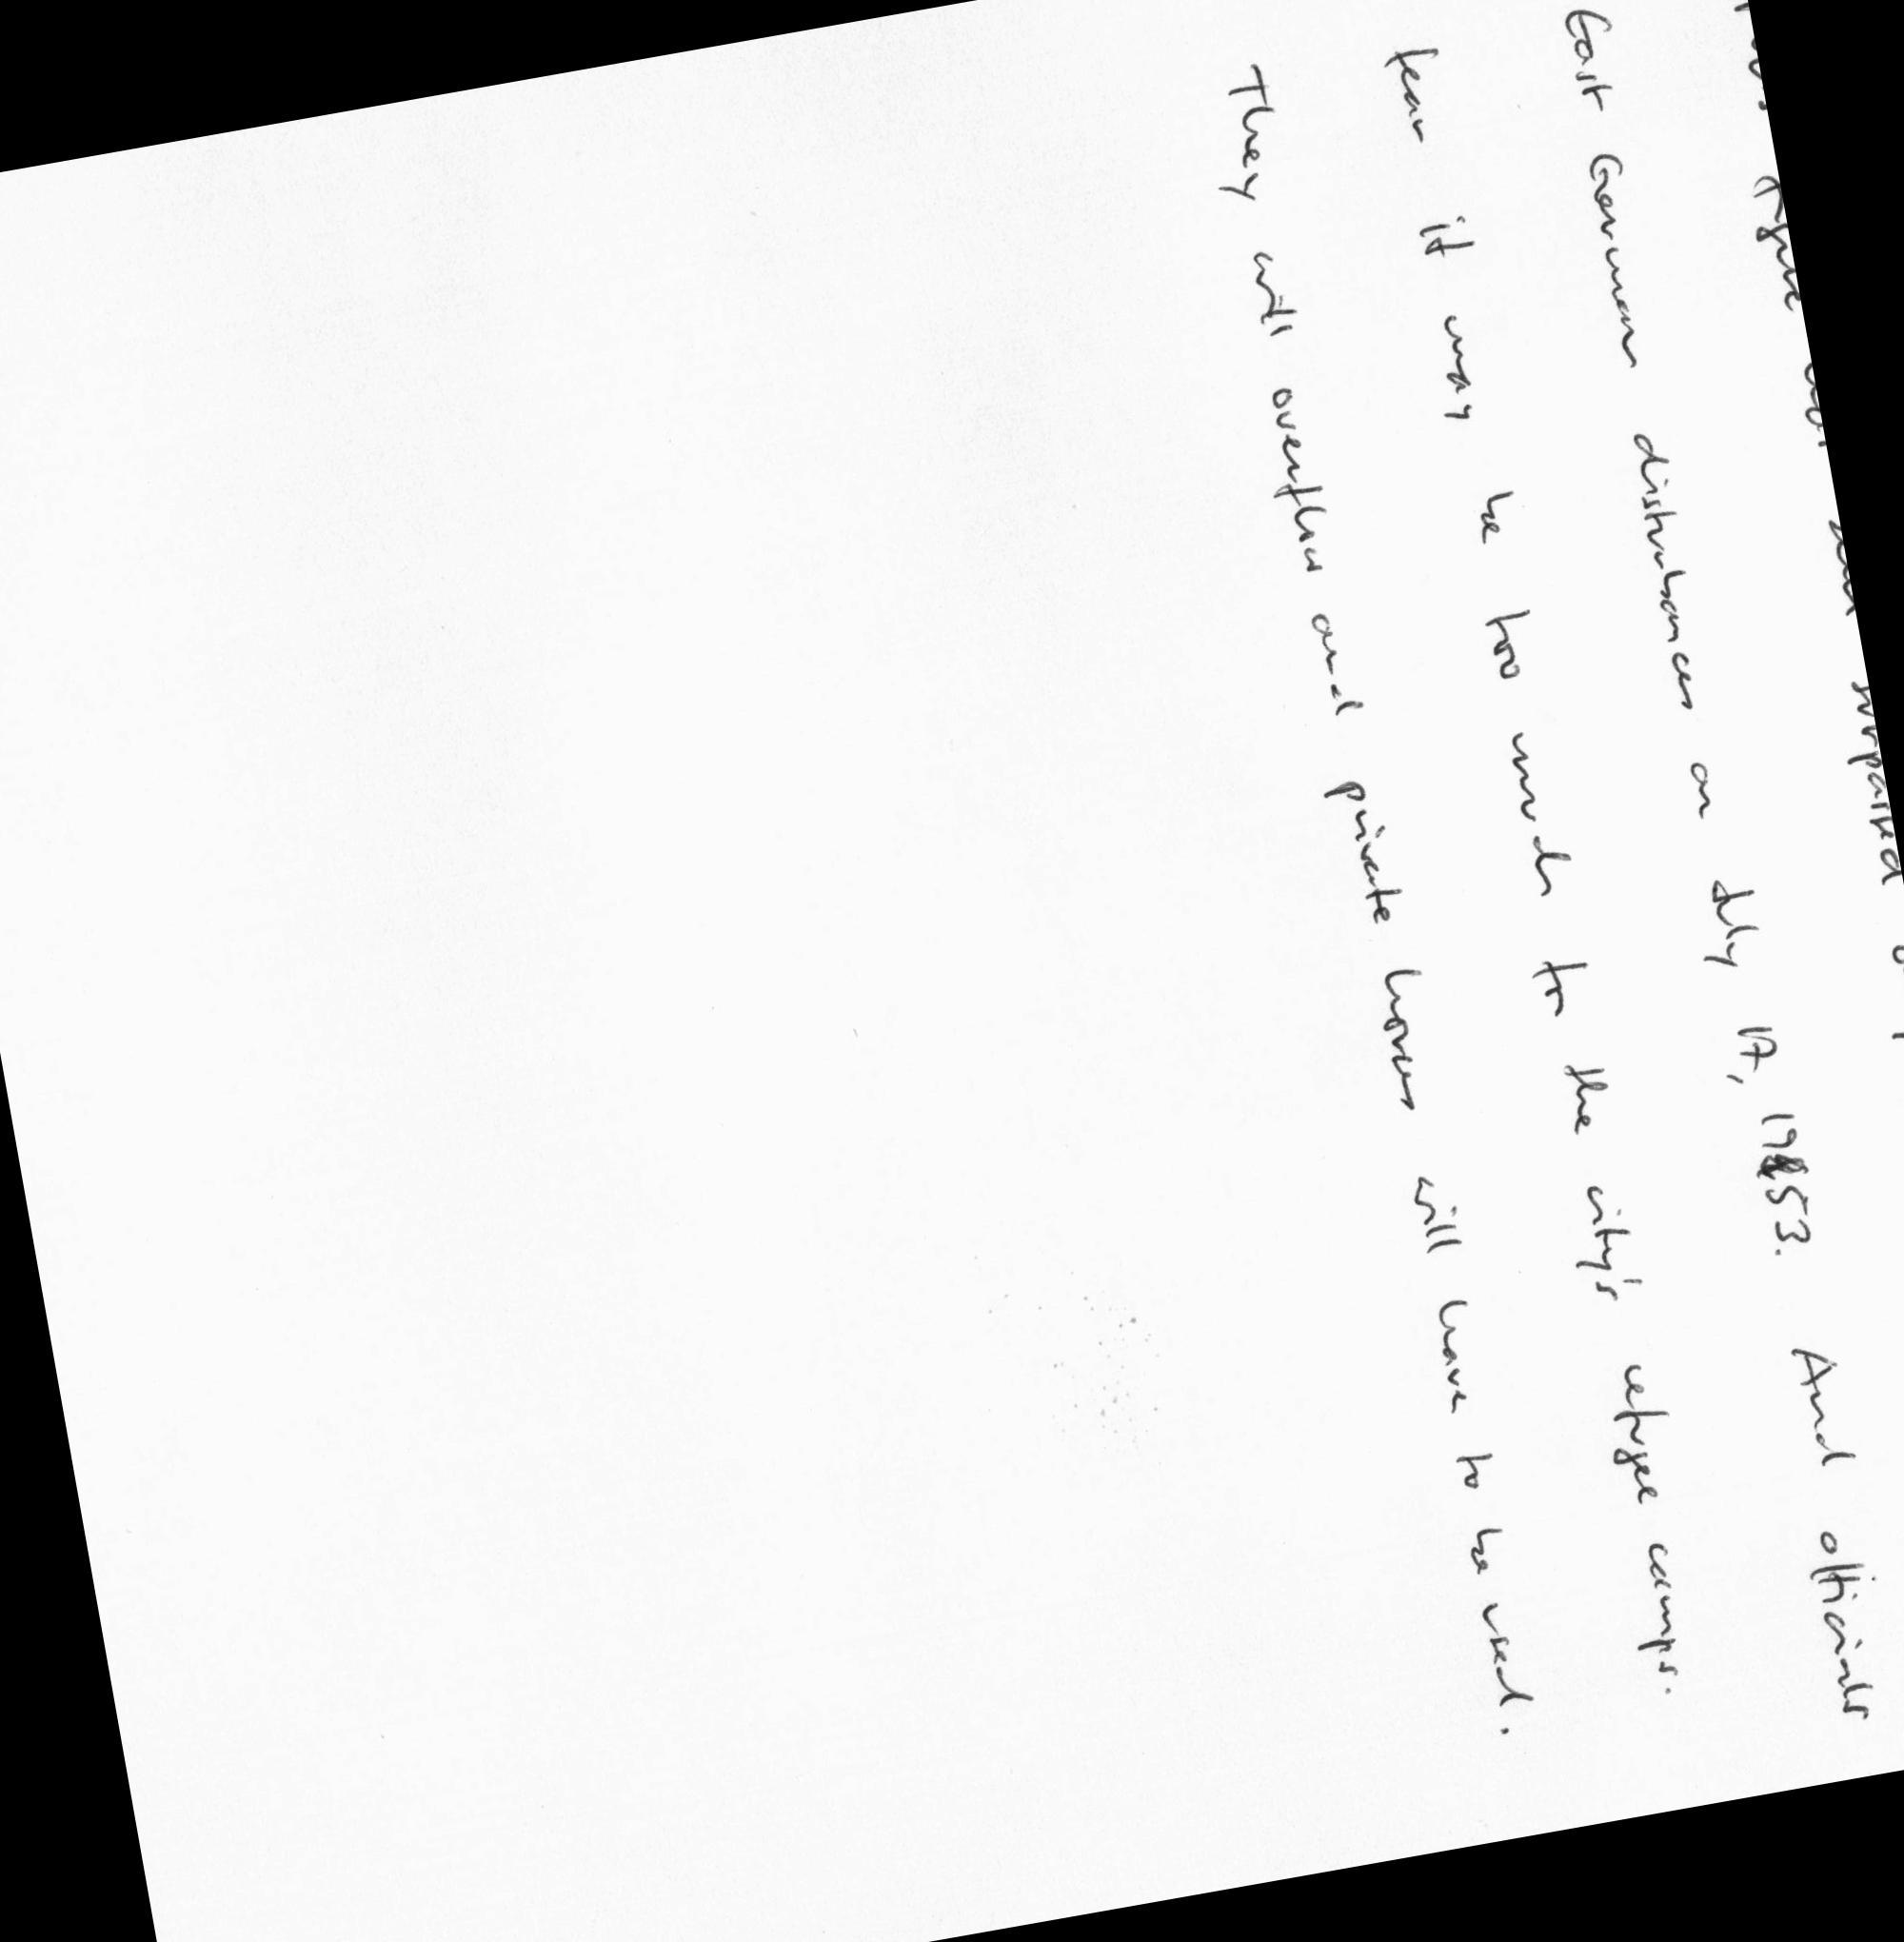 figure surpassed
East German disturbances on July 17, 1953. And officials
fear it may be too much for the city's refugee camps.
They will overflow and private houses will have to be used.